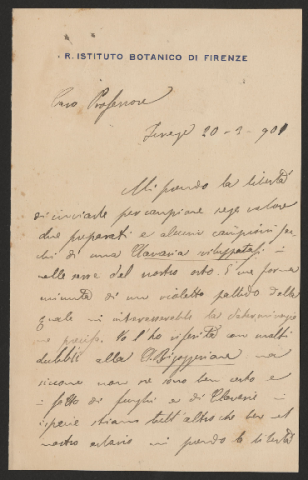 R. ISTITUTO BOTANICO DI FIRENZE
Caro Professore
Firenze 20-1-901
Mi prendo la libertà
di inviarle per campione senza valore
due preparati e alcuni campioni
di una Clavaria sviluppatasi
nelle serre del nostro orto. È una forma
minuta di un violetto pallido della
quale mi interesserebbe la determinazio
ne Io l'ho riferita con molti
dubbii alla C. Bizzozeriana ma
siccome non ne sono ben certo e
in fatto di funghi e di Clavarie in
ispecie stiamo tutt'altro che bene nel
nostro erbario mi prendo la libertà